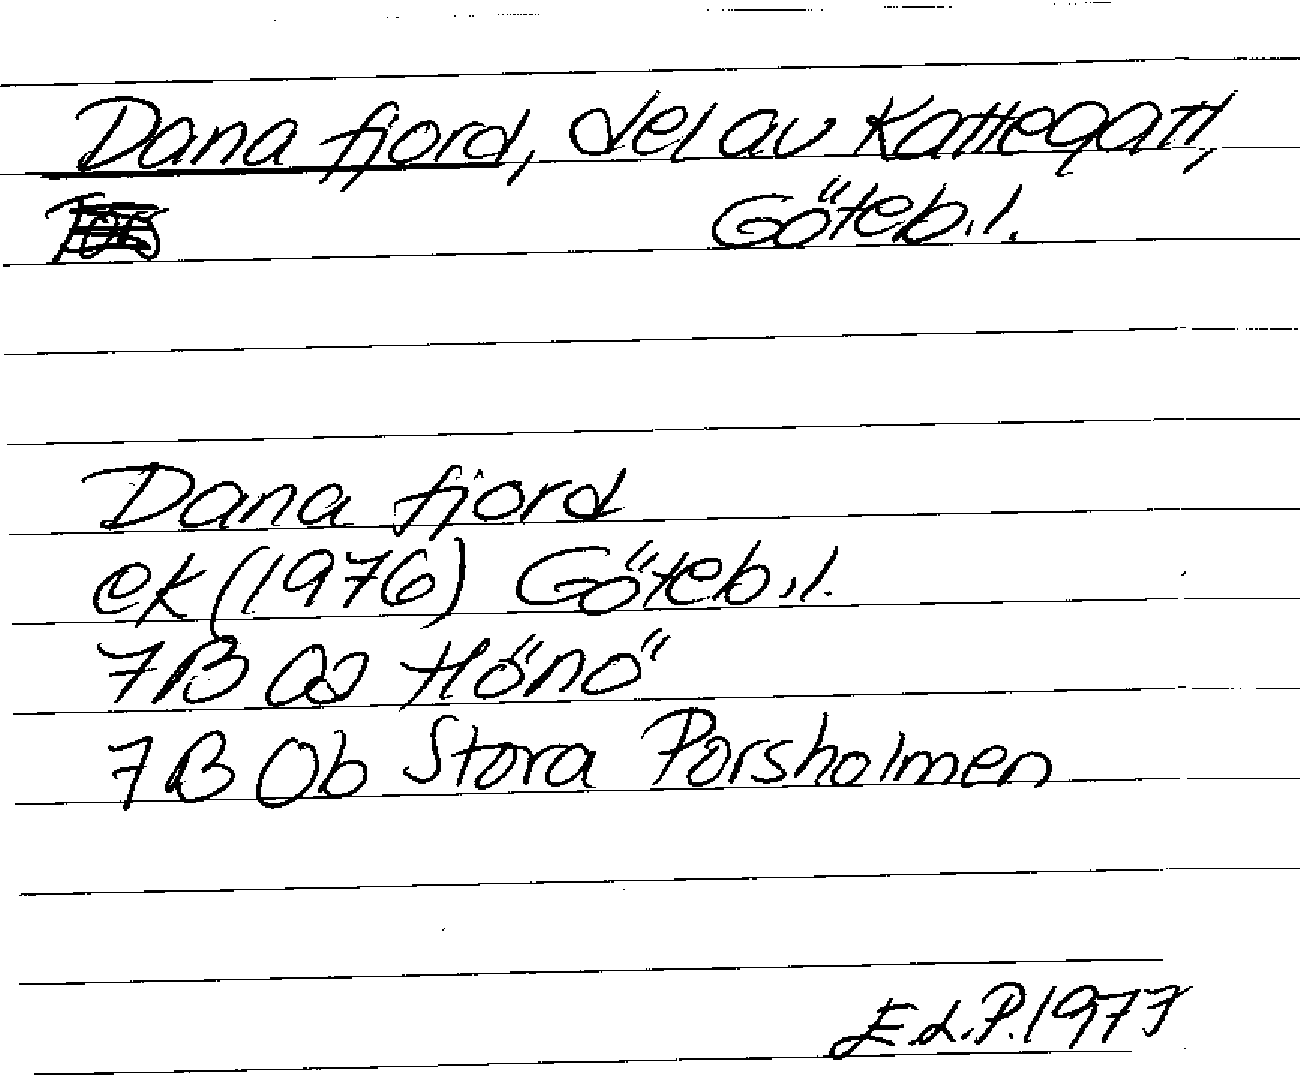 Dana fjord, del av Kattegatt,
Göteb.l.
Dana fjord
ek (1976) Göteb.l.
7B 0a Hönö
7B 0b Stora Porsholmen
E.L.P. 1977